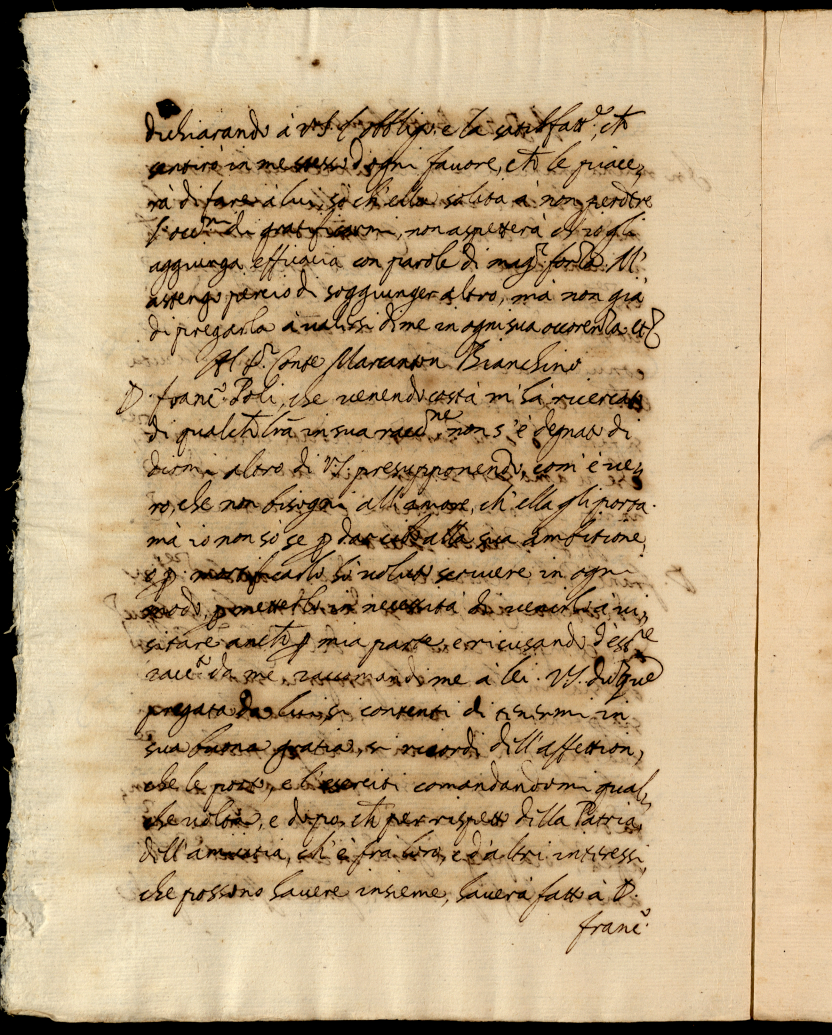 dichiarando à V.S. l'obbligo, e la satisfatt.e, ch'
sentirò in me stesso d'ogni favore, ch' le piace,
rà di fare à lui, so ch'ella solita à non perdere
l'occ.ni di gratificarmi, non aspetterà ch'io gli
aggiunga efficacia con parole di mag.r forza. M'
astengo perciò di soggiunger altro, mà non già
di pregarla à valersi di me in ogni sua occorrenza etc.
Al S.r Conte Marcanton Bianchino
D. Franc.o Poli, che venendo costà m'hà ricercato
di qualch' l'ra in sua racc.ne, non s'è degnato di
dirmi altro di V.S. presupponendo, com'è ve,
ro, che non bisogni all'amore, ch'ella gli porta.
mà io non sò se p dar cibo alla sua ambitione,
o p mortificarlo hò voluto scrivere in ogni
modo, p metterlo in necessità di venirla à vi,
sitare anch' p mia parte, e ricusando d'ess.re
racc.o da me, raccomandi me à lei. V.S. dunque
pregata da lui si contenti di tenermi in
sua buona gratia, si ricordi dell'affettion,
che le porto, e l'eserciti comandandomi qual,
che volta, e dopo, ch' per rispetto della Patria,
dell'amicitia, ch'è fra loro, e d'altri interessi,
che possono havere insieme, haverà fatto à D.
Franc.o